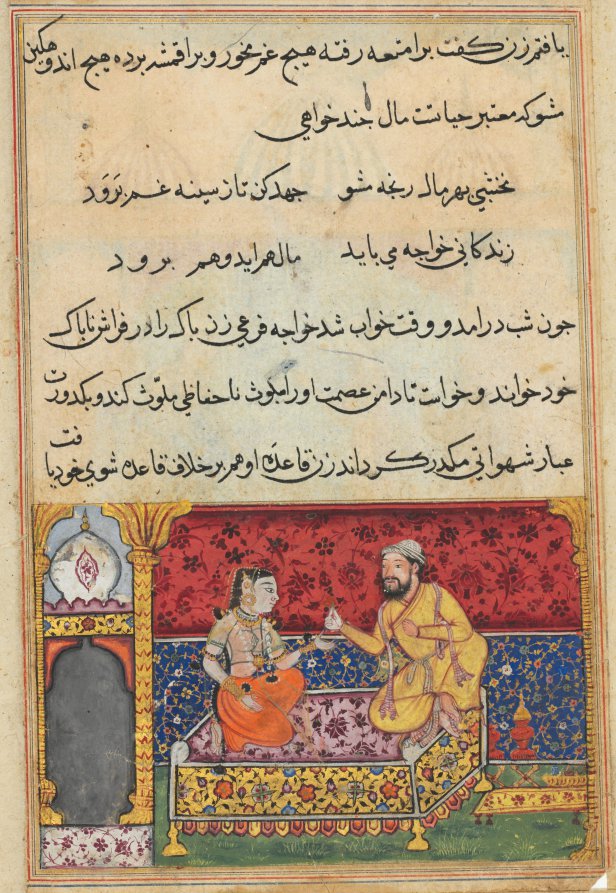 یافتم زن کفت بر امتعه رفته هیج غم مخور و بر اقمشه برده هیج اندوهکین
مشو که معتبر حیاتست مال جند خواهی
نخشبی بهر مال رنجه مشو جهد کن تا ز سینه غم برود
زندکانی خواجه می باید مال هم اید و هم برود
جون شب درامد و وقت خواب شد خواجه فرعی زن باک را در فراش ناباک
خود خواند و خواست تا دامن عصمت او را بلوث ناحفاظی ملوث کند و بکدورت
عبار شهوانی مکدر کرداند زن قاعده او هم بر خلاف قاعده شوی خود یافت